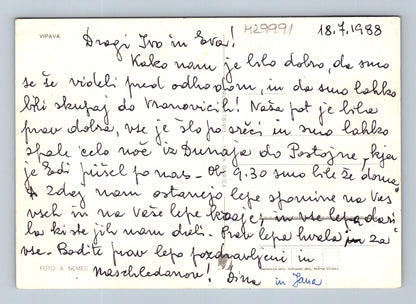 VIPAVA
M29991
18.7.1988
Dragi Ivo in Eva!
Kako nam je bilo dobro, da smo
se še videli pred odhodom, in da smo lahko
bili skupaj do Vranovicih! Naša pot je bila
prav dobra, vse je šlo po sreči in smo lahko
spale celo noč iz Dunaja do Postojne, kjer
je Edi prišel po nas. Ob 9.30 smo bile že doma.
Zdaj nam ostanejo lepe spomine na Vas
vseh in na Vaše lepe kraje, in vse lepa darila
ki ste jih nam dali. Prav lepa hvala za
vse. Bodite prav lepo pozdravljeni in
nasvidenje!
in Jana
FOTO A NEMEC